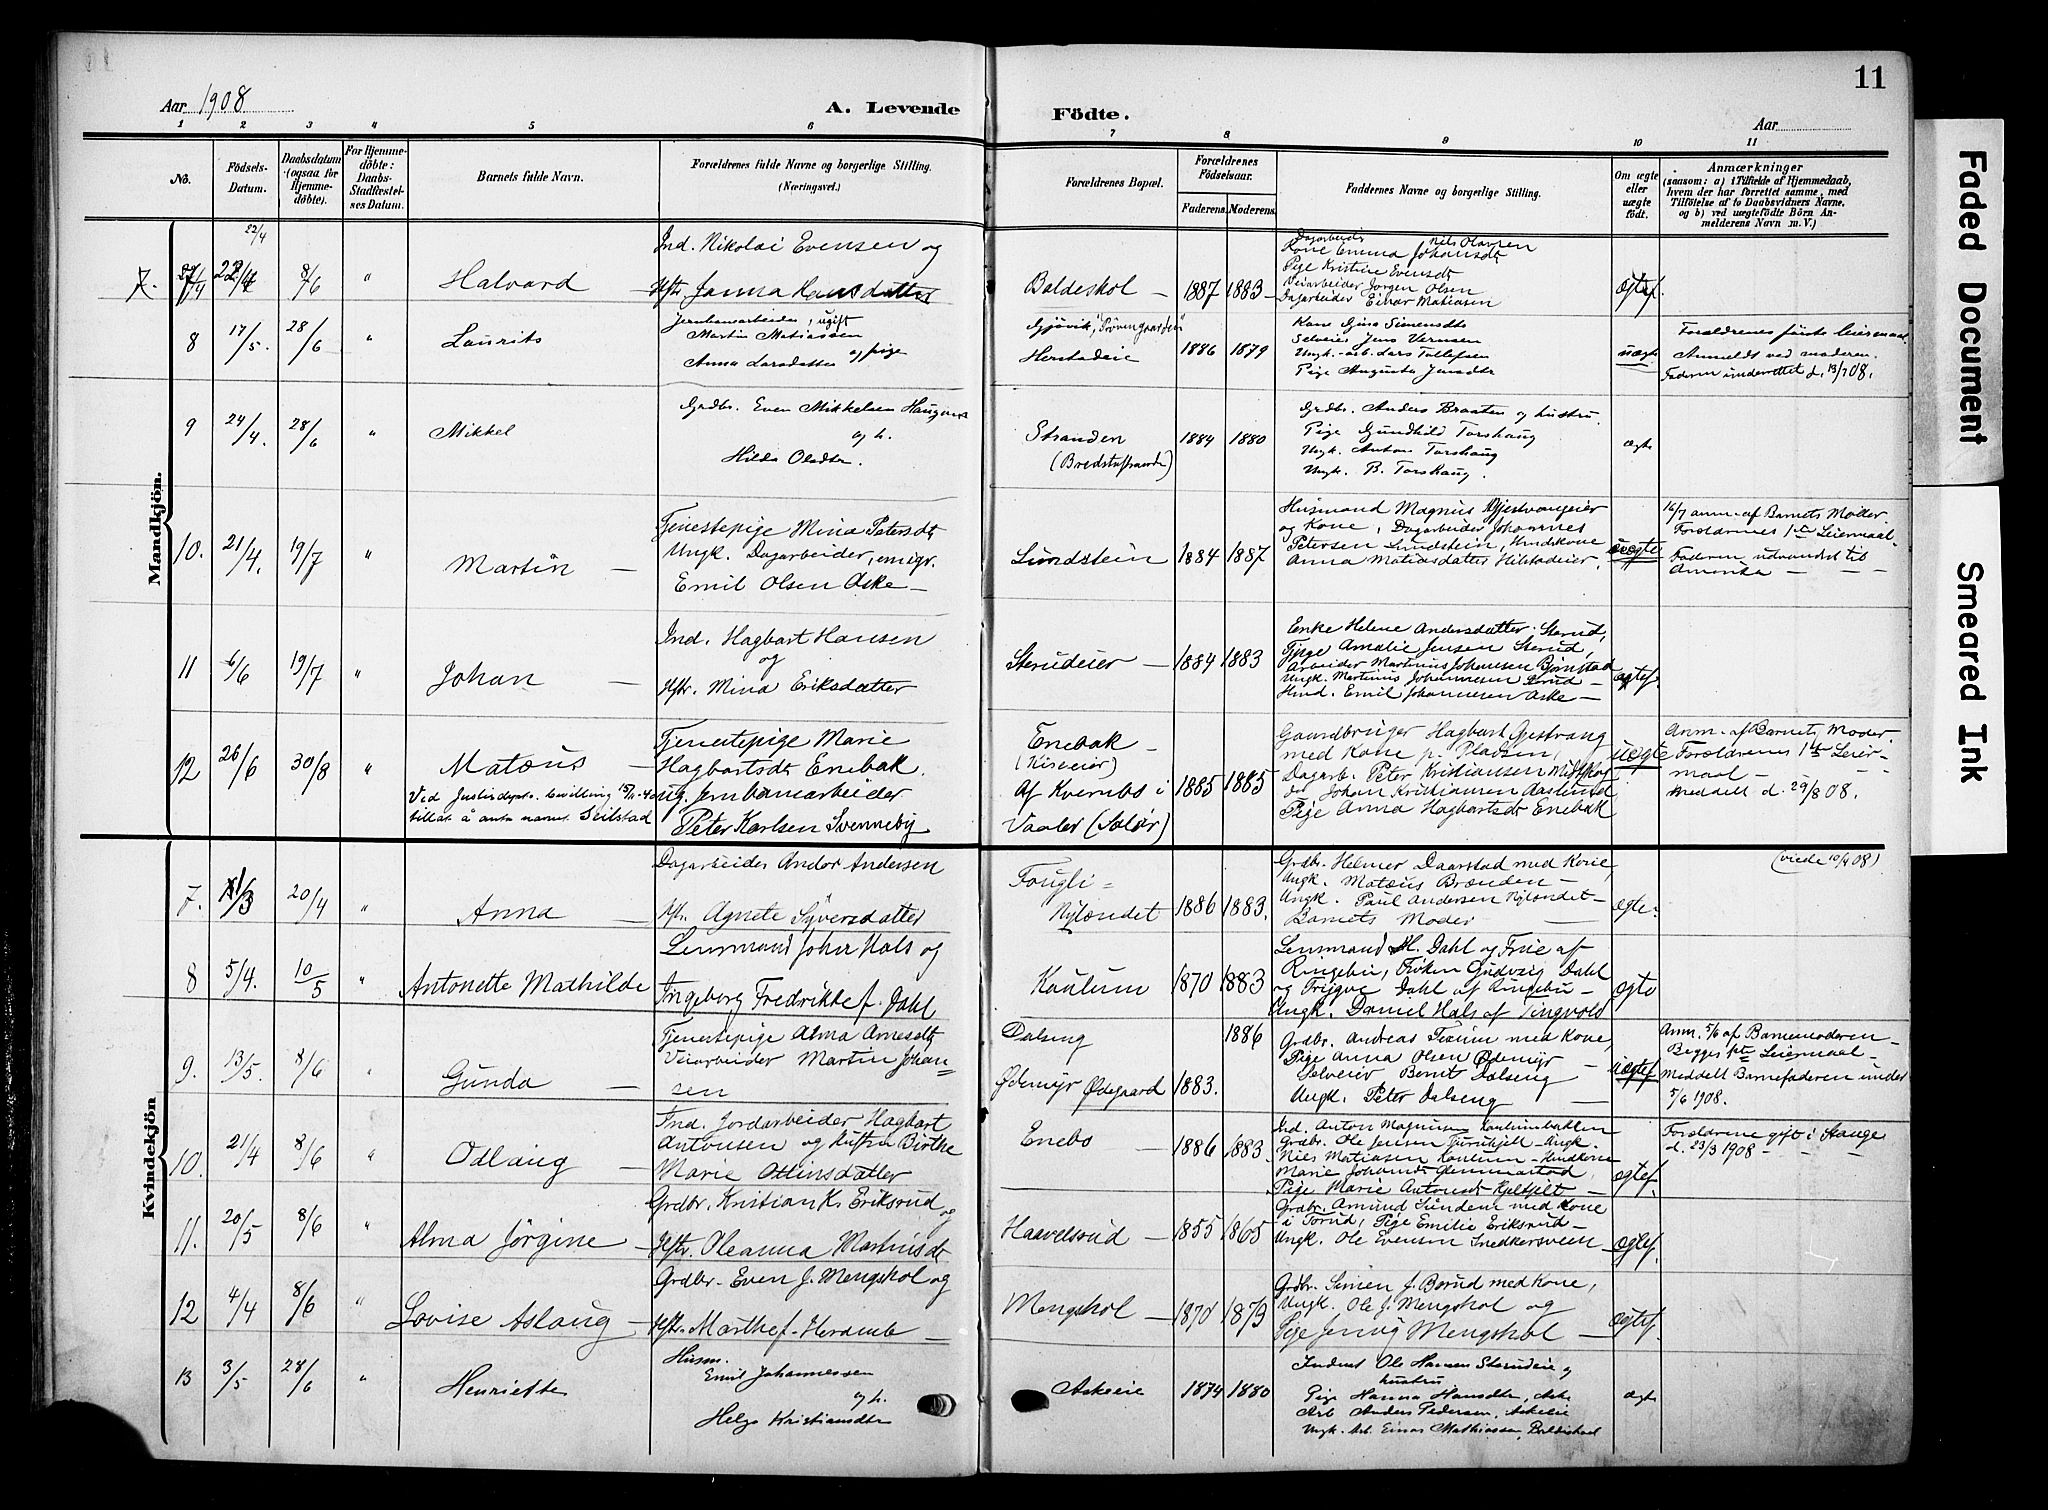 11
Aar 1908
A. Levende
Födte.
Aar
1 2 3 4 5 6 7 8 9 10 11
No.
Födsels-Datum.
Daabsdatum (ogsaa for Hjemmedöbte).
For Hjemmedöbte: Daabs-Stadfæstelses Datum.
Barnets fulde Navn.
Forældrenes fulde Navne og borgerlige Stilling. (Næringsvei.)
Forældrenes Bopæl.
Forældrenes Födselsaar.
Faderens.
Moderens.
Faddernes Navne og borgerlige Stilling.
Om ægte eller uægte födt.
Anmærkninger
(saasom: a) i Tilfælde af Hjemmedaab, hvem der har forrettet samme, med Tilföielse af to Daabsvidners Navne, og b) ved uægtefödte Börn Anmelderens Navn m. V.)
Mandkjön.
7. 22/4 8/6 " Halvard
Ind. Nikolai Evensen og
Hstr. Janna Hansdatter
Baldeskol — 1887 1883
Dagarbeider Nils Olavsen
Kone Emma Johansdt
Pige Kristine Evensdt
Veiarbeider Jørgen Olsen
Dagarbeider Einar Matiasen
ægtef.
8 17/5. 28/6 " Laurits
Jernbanearbeider, ugift
Martin Matiassen
og pige
Anna Larsdatter
Gjøvik,
Herstadeie
1886 1879
Kone Gina Simensdtr
Selveier Jens Iversen
Ungk. arb. Lars Tollefsen
Pige Augusta Jensdtr
uægte
Forældrenes første leiermaal.
Anmeldt ved moderen.
Faderen underrettet d. 13/7 08.
9 24/4. 28/6 " Mikkel
Grdbr. Even Mikkelsen Haugerud
og h.
Hilda Olsdtr.
Stranden
1884 1880
Grdbr. Anders Braaten og hustru.
Pige Gundhild Torshaug
Ungk. Anton Torshaug
Ungk. B. Torshaug.
ægte
10. 21/4. 19/7 " Martin —
Tjenestepige Mina Petersdt
Ungk. Dagarbeider, emigr.
Emil Olsen Aske —
Lundstein 1884 1887
Husmand Magnus Gjestvangeier
og Kone, Dagarbeider Johannes
Petersen Lundstein, Hmdskone
Anna Matiasdatter Hilstadeier.
uægte
16/7 anm. af Barnets Moder.
Forældrenes 1ste Leiermaal.
Faderen udvandret til
Amerika —
11 6/6 19/7 " Johan —
Ind. Hagbart Hansen
og
Hstr. Mina Eriksdatter
Sterudeier — 1884 1883
Enke Helene Andersdatter Sterud,
Tjpge Amalie Jensen Sterud,
Arbeider Martinus Johansen Bjørnstad
Ungk. Martinus Johannesen Sterud —
Hmd. Emil Johannesen Aske —
ægtef.
12 26/6 30/8 " Matæus —
Ved Justisdepts. bevilling 15/11-40
tillat å anta navnet Seilstad
Tjenestepige Marie
Hagbartsdt Enebak.
ug. Jernbanearbeider
Peter Karlsen Svenneby
Enebak —
(Kisveier)
Af Kvernbs i
Vaaler (Solør)
1885 1885
Gaardbruger Hagbart Gjestvang
med Kone p. Pladsen,
Dagarb. Peter Kristiansen Midtskog
do Johan Kristiansen Aaslund
Pige Anna Hagbartsdt Enebak
uægte
Anm. af Barnets Moder.
Forældrenes 1ste Leiermaal —
Meddelt d. 29/8 08.
Kvindekjön
7. 11/3 20/4 " Anna —
Dagarbeider Andor Andersen
Hstr. Agnete Syversdatter
Fougli=
Nylændet 1886 1883.
Grdbr. Helmer Daarstad med Kone,
Ungk. Matæus Brænden —
Ungk. Paul Andersen Nylændet —
Barnets Moder —
ægte.
(viede 10/4 08)
8 5/4. 10/5 " Antonette Mathilde
Lensmand Johan Hals og
Ingeborg Fredrikke f. Dahl
Kaulum 1870 1883
Lensmand M. Dahl og Frue af
Ringebu, Frøken Gudveig Dahl
og Trygve Dahl af Ringebu —
Ungk. Daniel Hals af Tingvold
ægte
9. 13/5. 8/6 " Gunda —
Tjenestepige Alma Arnesdt
Veiarbeider Martin Johansen
Dalseng 1886
Ødemyr Ødegaard 1883.
Grdbr. Andreas med Kone,
Pige Anna Olsen Ødemyr —
Selveier Bernt Dalseng
Ungk. Peter Dalseng —
uægtef.
Anm. 5/6 af Barnemoderen —
Begges 1ste Leiermaal —
Meddelt Barnefaderen under
5/6 1908.
10. 21/4 8/6 " Odlaug —
Ind. Jordarbeider Hagbart
Antonsen og hustru Birthe
Marie Odinsdatter
Enebo — 1886 1883.
Ind. Anton Magnusen Kaulumbakken
Grdbr. Ole Jensen Ungk.
Niels Matiasen Kaulum — Hmdkone
Marie Johansdt Glemmestad,
Pige Marie Antonsdt
ægtef.
Forældrene gift i Stange
d. 23/3 1908 —
11. 20/5 8/6 " Alma Jørgine —
Grdbr. Kristian K. Eriksrud og
Hstr. Oleanna Martinusdt
Haavelsrud — 1855 1865
Grdbr. Amund Sundene med Kone
i Torud, Pige Emilie Eriksrud —
Ungk. Ole Evensen Snedkersveen
ægtef.
12 4/4 8/6 " Lovise Aslaug —
Grdbr. Even J. Mengshol og
Hstr. Marthe f. Heramb —
Mengshol — 1870 1879
Grdbr. Simen J. Borud med Kone,
Ungk. Ole J. Mengshol og
Pige Jenny Mengshol —
ægtef.
13 3/5 28/6 " Henriette
Husm.
Emil Johannessen
og h.
Helga Kristiansdtr
Askeie 1874 1880
Inderst Ole Hansen Sterudeie og
hustru
Pige Hanna Hansdtr, Aske
Arb. Anders Pedersen, Askeie
Ungk. Arb. Einar Mathiassen, Baldishol
ægte
Faded Document
Smeared Ink